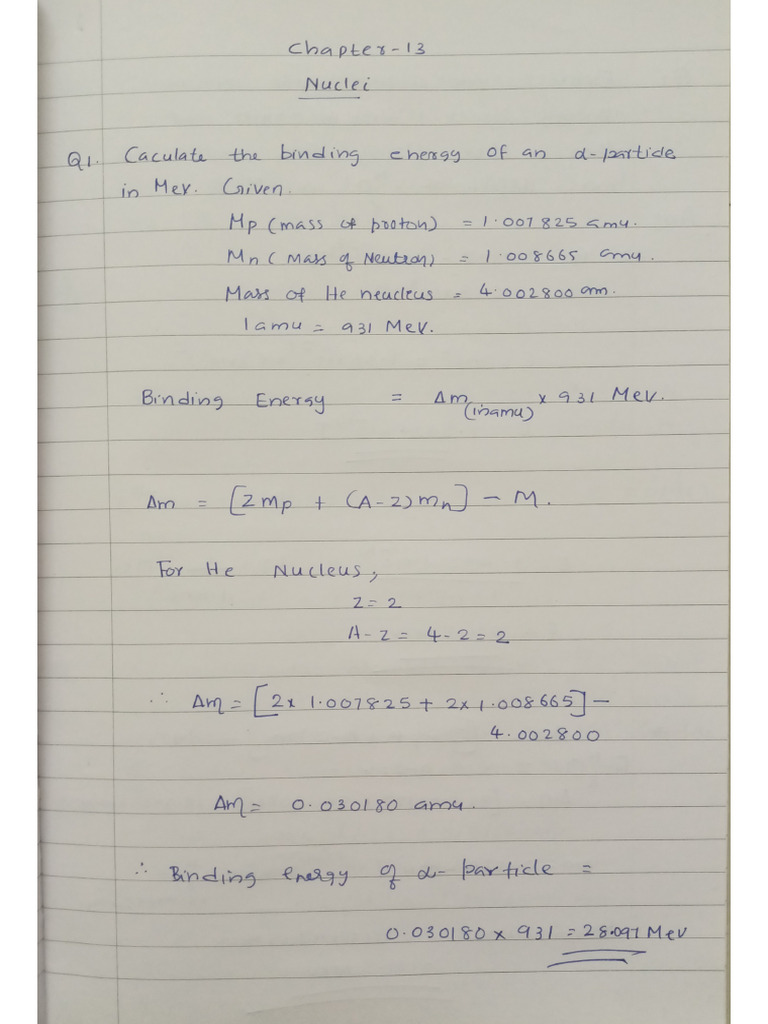 Chapter-13
Nuclei
Q1. Caculate the binding energy of an α-particle
in Mev. Given.
Mp (mass of proton) = 1.007825 amu.
Mn ( Mass of Neutron) = 1.008665 amu.
Mass of He neucleus = 4.002800 am.
1 amu = 931 Mev.
Binding Energy = Δm (inamu) x 931 Mev.
Δm = [Zmp + (A-Z)mn] - M.
For He Nucleus,
Z = 2
A-Z = 4-2 = 2
∴ Δm = [2x 1.007825 + 2x 1.008665] -
4.002800
Δm = 0.030180 amu.
∴ Binding energy of α- particle =
0.030180 x 931 = 28.097 Mev